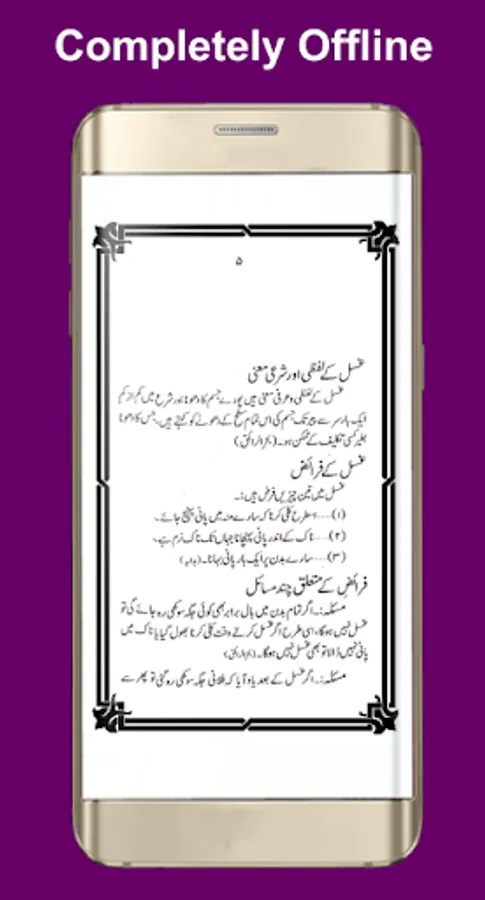 Completely Offline
۵
غسل کے لفظی اور شرعی معنی
غسل کے لفظی و عرفی معنی ہیں پورے جسم کا دھونا اور شرع میں کم از کم
ایک بار سر سے پیر تک جسم کی اس تمام سطح کے دھونے کو کہتے ہیں، جس کا دھونا
بغیر کسی تکلیف کے ممکن ہو۔ (بحر الرائق)
غسل کے فرائض
غسل میں تین چیزیں فرض ہیں:۔
(۱).... اسطرح کلی کرنا کہ سارے منہ میں پانی پہنچ جائے۔
(۲).... ناک کے اندر پانی پہنچانا جہاں تک ناک نرم ہے۔
(۳).... سارے بدن پر ایک بار پانی بہانا۔ (ہدایہ)
فرائض کے متعلق چند مسائل
مسئلہ:۔ اگر تمام بدن میں بال برابر بھی کوئی جگہ سوکھی رہ جائے گی تو
غسل نہیں ہوگا، اسی طرح اگر غسل کرتے وقت کلی کرنا بھول گیا یا ناک میں
پانی نہیں ڈالا تو بھی غسل نہیں ہوگا۔ (بحر الرائق)
مسئلہ:۔ اگر غسل کے بعد یاد آیا کہ فلانی جگہ سوکھی رہ گئی تو پھر سے